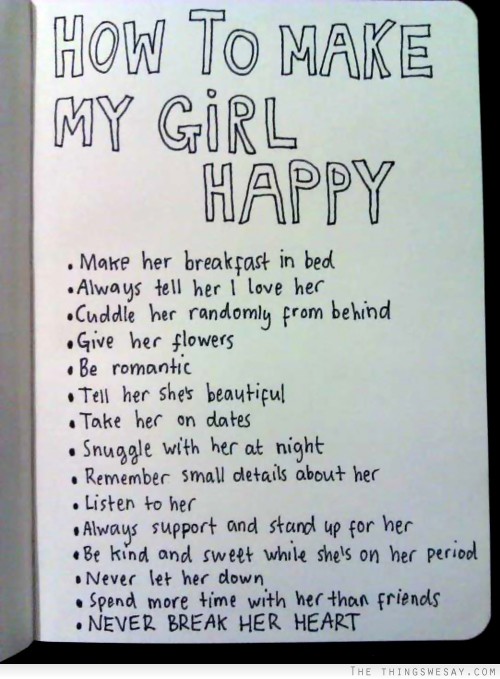 HOW TO MAKE
MY GiRL
HAPPY
• Make her breakfast in bed
• Always tell her I love her
• Cuddle her randomly from behind
• Give her flowers
• Be romantic
• Tell her she's beautiful
• Take her on dates
• Snuggle with her at night
• Remember small details about her
• Listen to her
• Always support and stand up for her
• Be kind and sweet while she's on her period
• Never let her down
• Spend more time with her than friends
• NEVER BREAK HER HEART
THE THINGSWESAY.COM